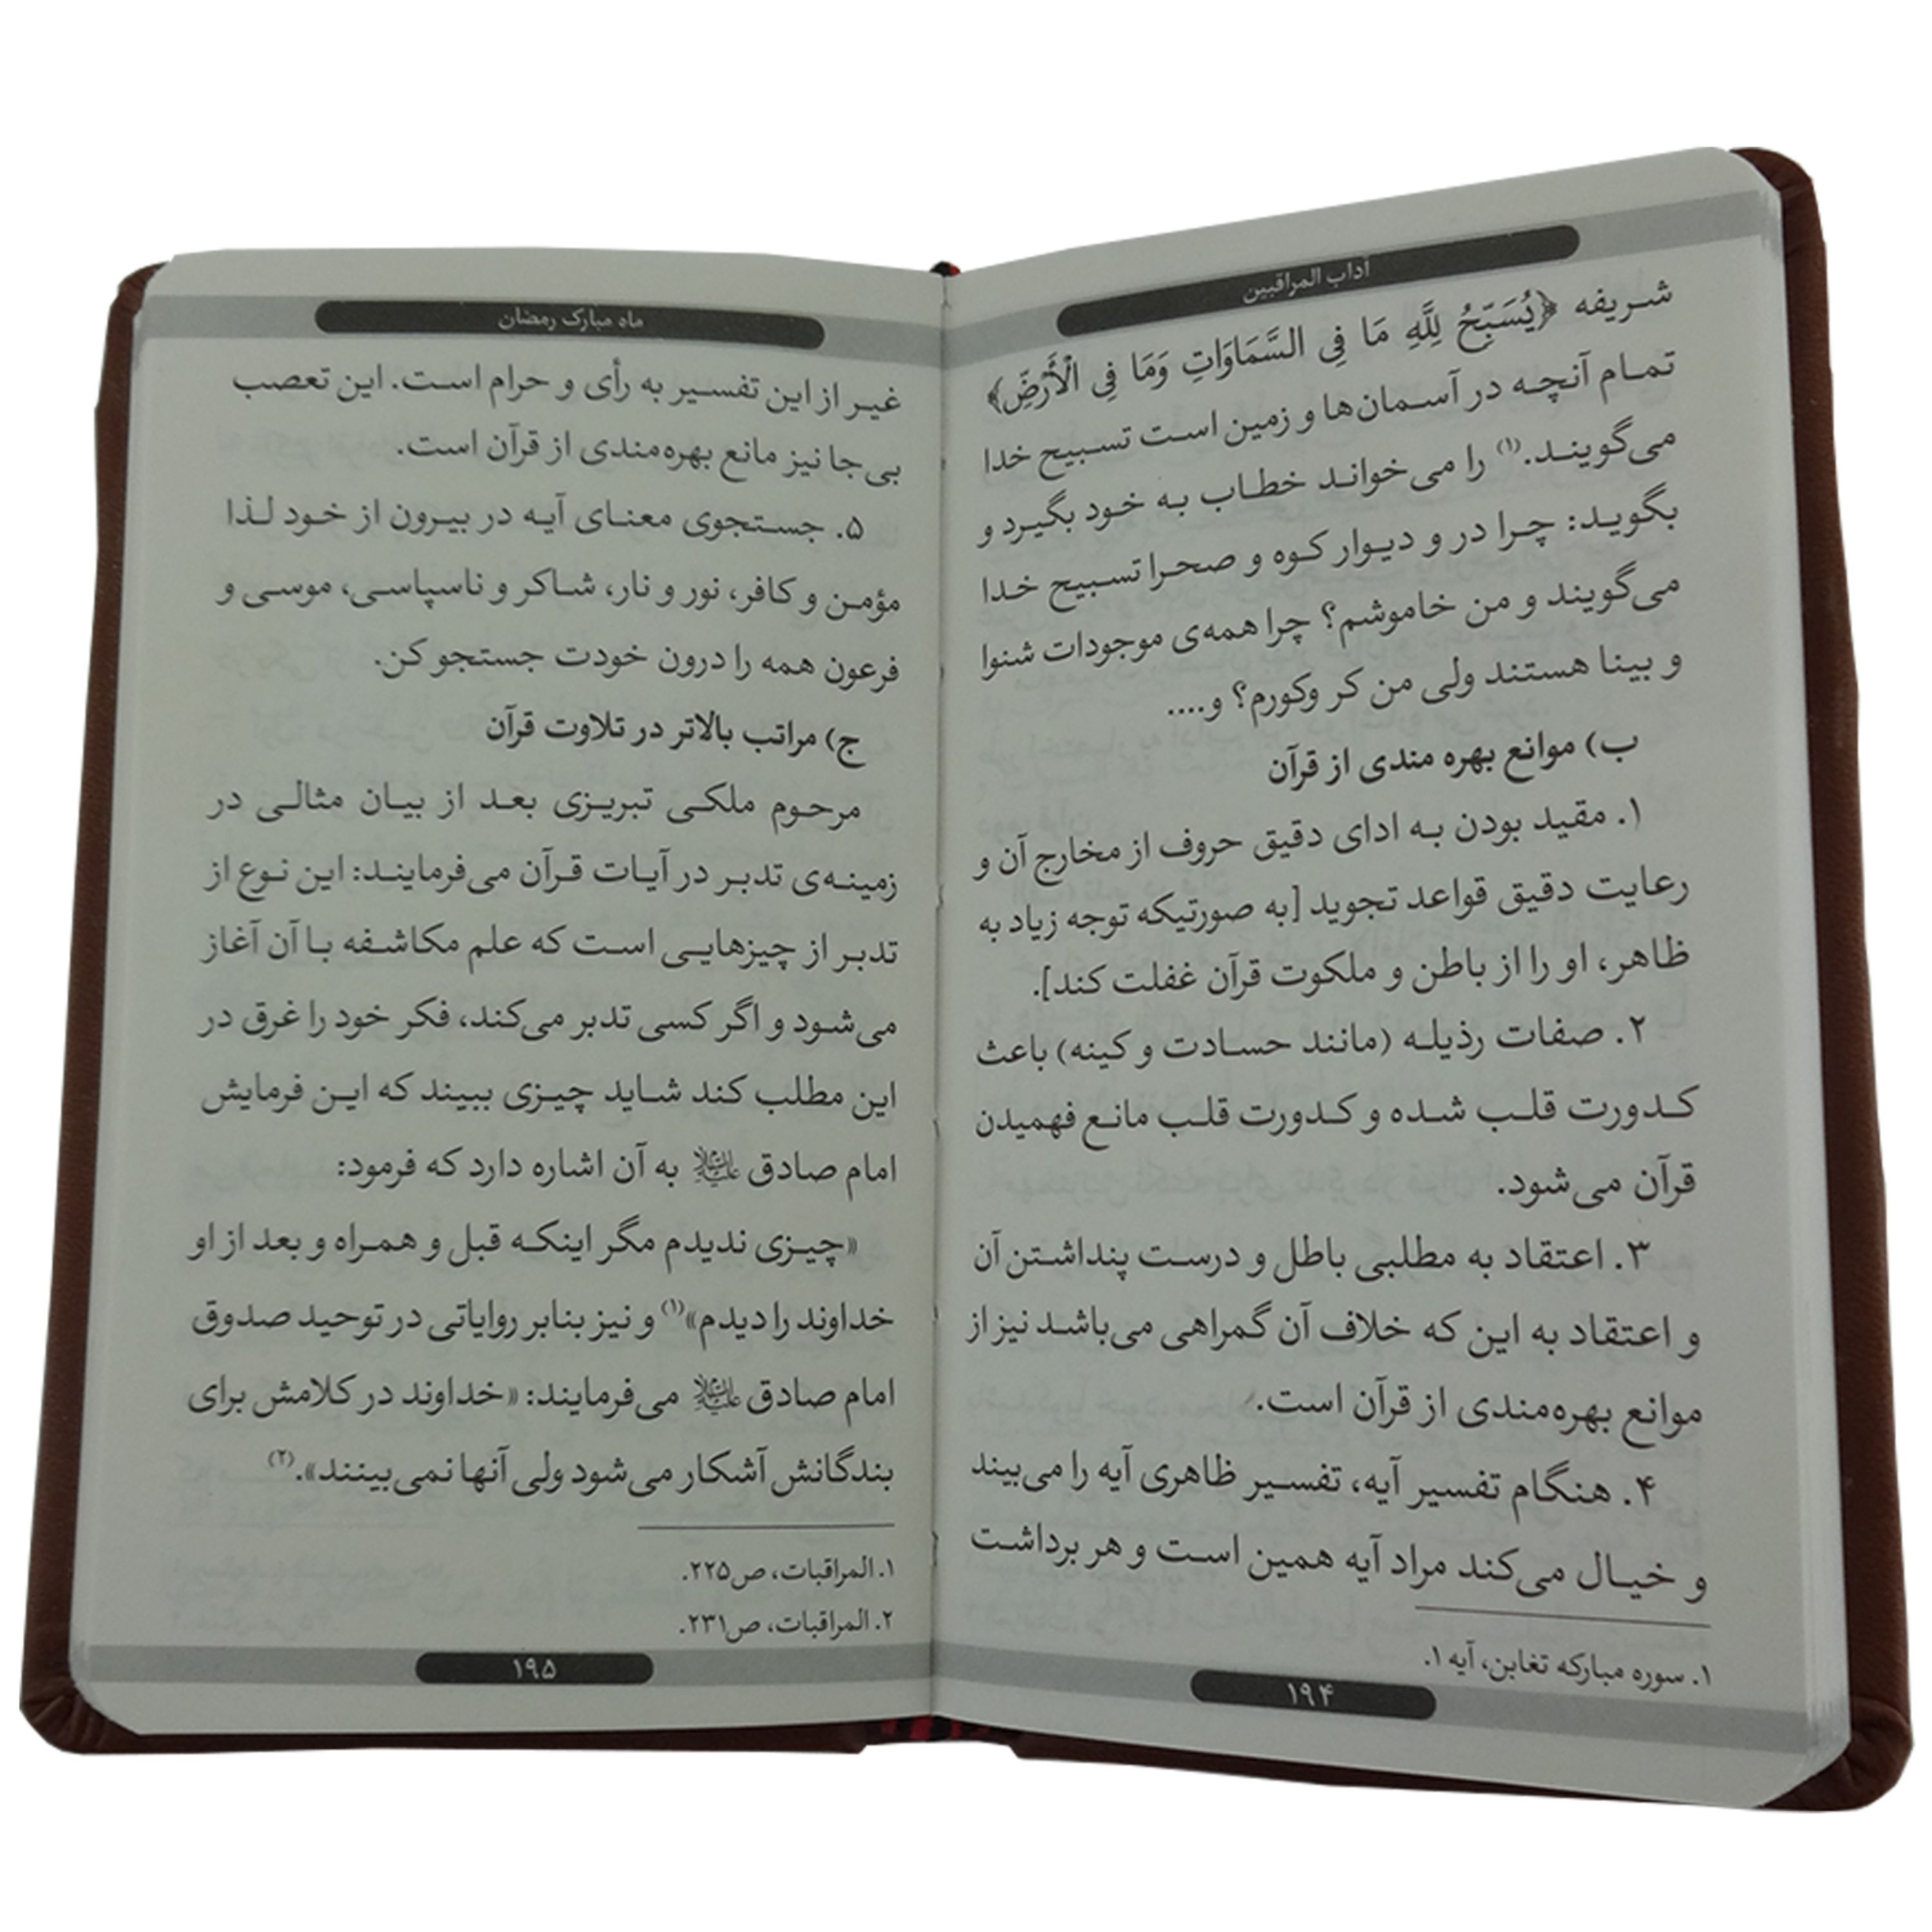 آداب المراقبین
شریفه ﴿يُسَبِّحُ لِلَّهِ مَا فِي السَّمَاوَاتِ وَمَا فِي الْأَرْضِ﴾
تمام آنچه در آسمان‌ها و زمین است تسبیح خدا
می‌گویند.(۱) را می‌خواند خطاب به خود بگیرد و
بگوید: چرا در و دیوار کوه و صحرا تسبیح خدا
می‌گویند و من خاموشم؟ چرا همه‌ی موجودات شنوا
و بینا هستند ولی من کر وکورم؟ و....
ب) موانع بهره مندی از قرآن
۱. مقید بودن به ادای دقیق حروف از مخارج آن و
رعایت دقیق قواعد تجوید [به صورتیکه توجه زیاد به
ظاهر، او را از باطن و ملکوت قرآن غفلت کند].
۲. صفات رذیله (مانند حسادت و کینه) باعث
کدورت قلب شده و کدورت قلب مانع فهمیدن
قرآن می‌شود.
۳. اعتقاد به مطلبی باطل و درست پنداشتن آن
و اعتقاد به این که خلاف آن گمراهی می‌باشد نیز از
موانع بهره‌مندی از قرآن است.
۴. هنگام تفسیر آیه، تفسیر ظاهری آیه را می‌بیند
و خیال می‌کند مراد آیه همین است و هر برداشت
۱. سوره مبارکه تغابن، آیه ۱.
۱۹۴
ماه مبارک رمضان
غیر از این تفسیر به رأی و حرام است. این تعصب
بی‌جا نیز مانع بهره‌مندی از قرآن است.
۵. جستجوی معنای آیه در بیرون از خود لذا
مؤمن و کافر، نور و نار، شاکر و ناسپاسی، موسی و
فرعون همه را درون خودت جستجو کن.
ج) مراتب بالاتر در تلاوت قرآن
مرحوم ملکی تبریزی بعد از بیان مثالی در
زمینه‌ی تدبر در آیات قرآن می‌فرمایند: این نوع از
تدبر از چیزهایی است که علم مکاشفه با آن آغاز
می‌شود و اگر کسی تدبر می‌کند، فکر خود را غرق در
این مطلب کند شاید چیزی ببیند که این فرمایش
امام صادق علیه‌السلام به آن اشاره دارد که فرمود:
«چیزی ندیدم مگر اینکه قبل و همراه و بعد از او
خداوند را دیدم»(۱) و نیز بنابر روایاتی در توحید صدوق
امام صادق علیه‌السلام می‌فرمایند: «خداوند در کلامش برای
بندگانش آشکار می‌شود ولی آنها نمی‌بینند».(۲)
۱. المراقبات، ص۲۲۵.
۲. المراقبات، ص۲۳۱.
۱۹۵